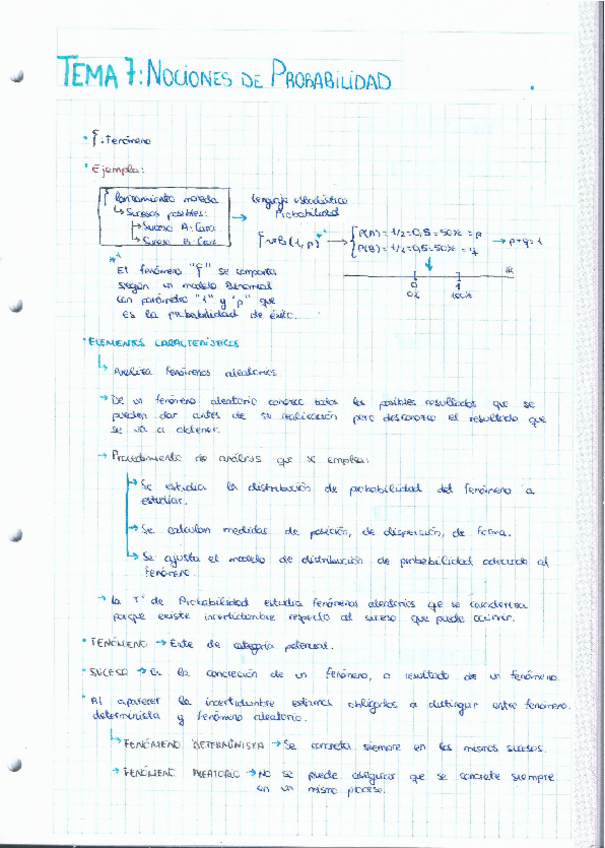 TEMA 7: NOCIONES DE PROBABILIDAD
· ξ: Fenómeno
· Ejemplo:
ξ Lanzamiento moneda
↳ Sucesos posibles:
→ Suceso A: Cara
↳ Suceso B:
→ Lenguaje estadístico
Probabilidad
ξ ~ B(1, p) *¹ → { P(A) = 1/2 = 0,5 = 50% = p
P(B) = 1/2 = 0,5 = 50% = q
→ p+q=1
0 1
0% 100%
*¹
El fenómeno "ξ" se comporta
según un modelo Binomial
con parámetro "1" y "p" que
es la probabilidad de éxito.
· ELEMENTOS CARACTERÍSTICOS
↳ Analiza fenómenos aleatorios
→ De un fenómeno aleatorio conozco todos los posibles resultados que se
pueden dar antes de su realización pero desconozco el resultado que
se va a obtener.
→ Procedimiento de análisis que se emplea:
→ Se estudia la distribución de probabilidad del fenómeno a
estudiar.
→ Se calculan medidas de posición, de dispersión, de forma.
↳ Se ajusta el modelo de distribución de probabilidad adecuado al
fenómeno.
→ La Tª de Probabilidad estudia fenómenos aleatorios que se caracteriza
porque existe incertidumbre respecto al suceso que puede ocurrir.
· FENÓMENO → Ente de categoría potencial.
· SUCESO → Es la concreción de un fenómeno, o resultado de un fenómeno.
· Al aparecer la incertidumbre estamos obligados a distinguir entre fenómeno
determinista y fenómeno aleatorio.
↳ FENÓMENO DETERMINISTA → Se concreta siempre en los mismos sucesos.
→ FENÓMENO ALEATORIO → No se puede asegurar que se concrete siempre
en un mismo proceso.